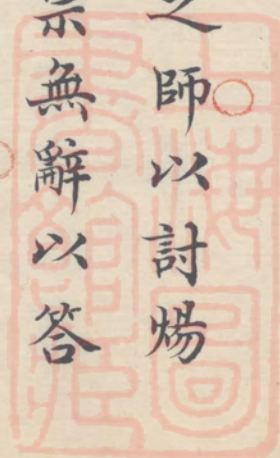 之師以討煬
宗無辭以答